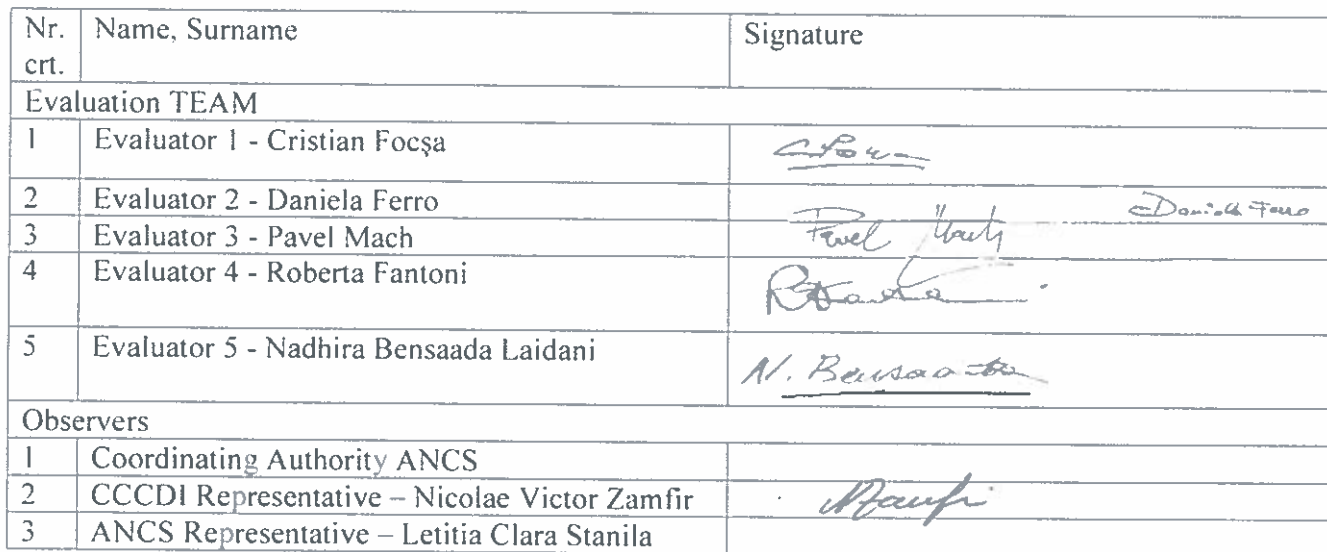 Nr. crt. Name, Surname Signature
Evaluation TEAM
1 Evaluator 1 - Cristian Focşa
2 Evaluator 2 - Daniela Ferro Daniela Ferro
3 Evaluator 3 - Pavel Mach Pavel Mach
4 Evaluator 4 - Roberta Fantoni
5 Evaluator 5 - Nadhira Bensaada Laidani N. Bensaada
Observers
1 Coordinating Authority ANCS
2 CCCDI Representative – Nicolae Victor Zamfir
3 ANCS Representative – Letitia Clara Stanila